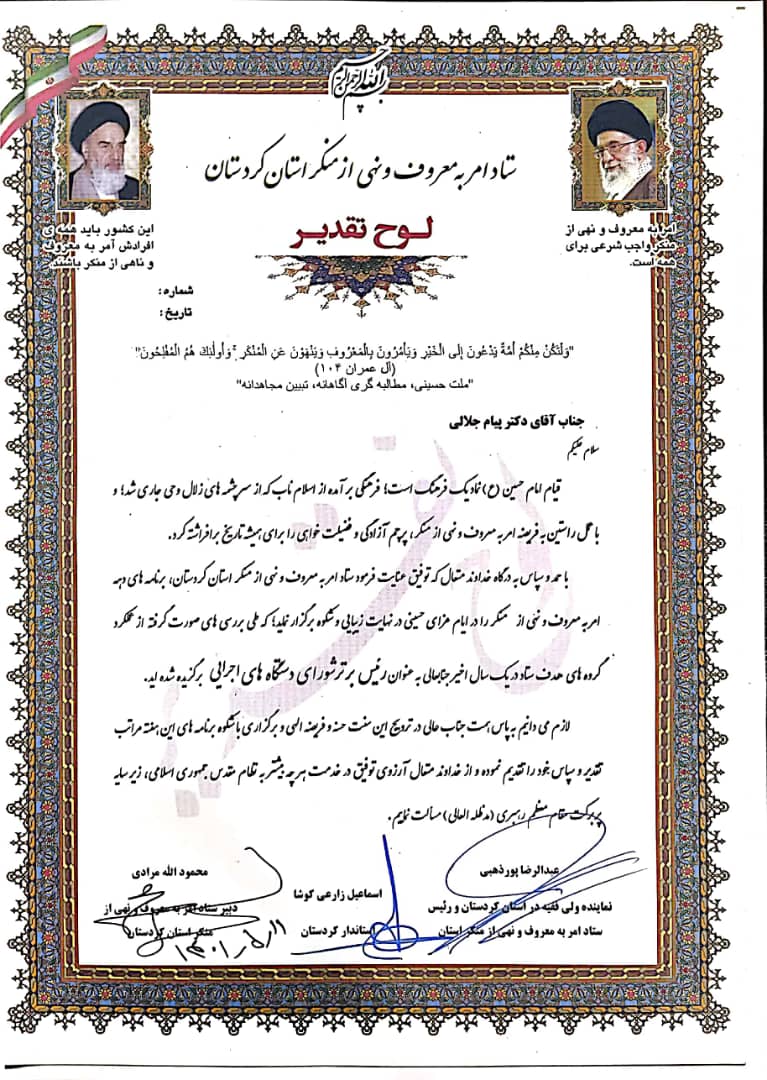 بسم الله الرحمن الرحیم
ستاد امر به معروف و نهی از منکر استان کردستان
لوح تقدیر
امر به معروف و نهی از
منکر واجب شرعی برای
همه است.
این کشور باید همه ی
افرادش آمر به معروف
و ناهی از منکر باشند.
شماره:
تاریخ:
"وَلْتَكُنْ مِنْكُمْ أُمَّةٌ يَدْعُونَ إِلَى الْخَيْرِ وَيَأْمُرُونَ بِالْمَعْرُوفِ وَيَنْهَوْنَ عَنِ الْمُنْكَرِ ۚ وَأُولَٰئِكَ هُمُ الْمُفْلِحُونَ"
(آل عمران ۱۰۴)
"ملت حسینی، مطالبه گری آگاهانه، تبیین مجاهدانه"
جناب آقای دکتر پیام جلالی
سلام علیکم
قیام امام حسین (ع) نماد یک فرهنگ است؛ فرهنگی برآمده از اسلام ناب که از سرچشمه های زلال وحی جاری شد؛ و
با عمل راستین به فریضه امر به معروف و نهی از منکر، پرچم آزادگی و فضیلت خواهی را برای همیشه تاریخ برافراشته کرد.
با حمد و سپاس به درگاه خداوند متعال که توفیق عنایت فرمود ستاد امر به معروف و نهی از منکر استان کردستان، برنامه های دهه
امر به معروف و نهی از منکر را در ایام عزای حسینی در نهایت زیبایی و شکوه برگزار نماید؛ که طی بررسی های صورت گرفته از عملکرد
گروه های هدف ستاد در یک سال اخیر جنابعالی به عنوان رئیس برتر شورای دستگاه های اجرایی برگزیده شده اید.
لازم می دانیم به پاس همت جناب عالی در ترویج این سنت حسنه و فریضه الهی و برگزاری با شکوه برنامه های این هفته مراتب
تقدیر و سپاس خود را تقدیم نموده و از خداوند متعال آرزوی توفیق در خدمت هر چه بیشتر به نظام مقدس جمهوری اسلامی، زیر سایه
پر برکت مقام معظم رهبری (مدظله العالی) مسألت نمایم.
عبدالرضا پورذهبی
نماینده ولی فقیه در استان کردستان و رئیس
ستاد امر به معروف و نهی از منکر استان
اسماعیل زارعی کوشا
استاندار کردستان
محمود الله مرادی
دبیر ستاد امر به معروف و نهی از
منکر استان کردستان